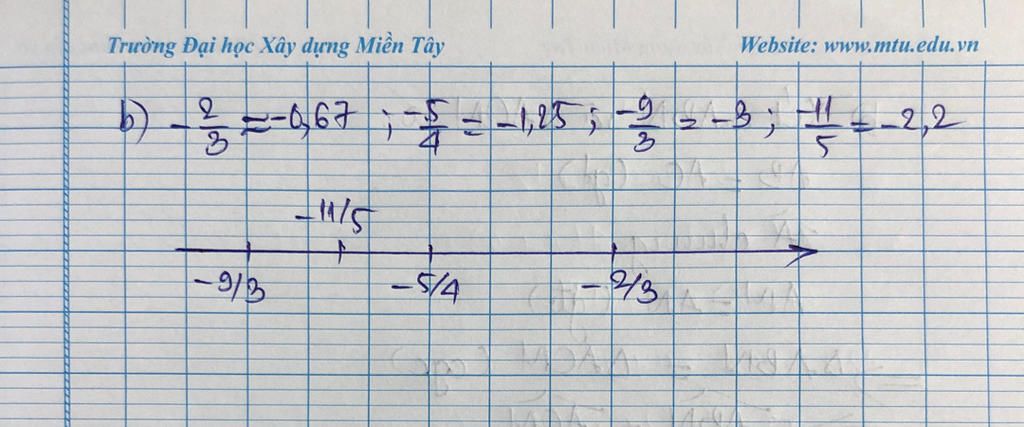 Trường Đại học Xây dựng Miền Tây Website: www.mtu.edu.vn
b) -2/3 ≈ -0,67 ; -5/4 = -1,25 ; -9/3 = -3 ; -11/5 = -2,2
-11/5
-9/3 -5/4 -2/3